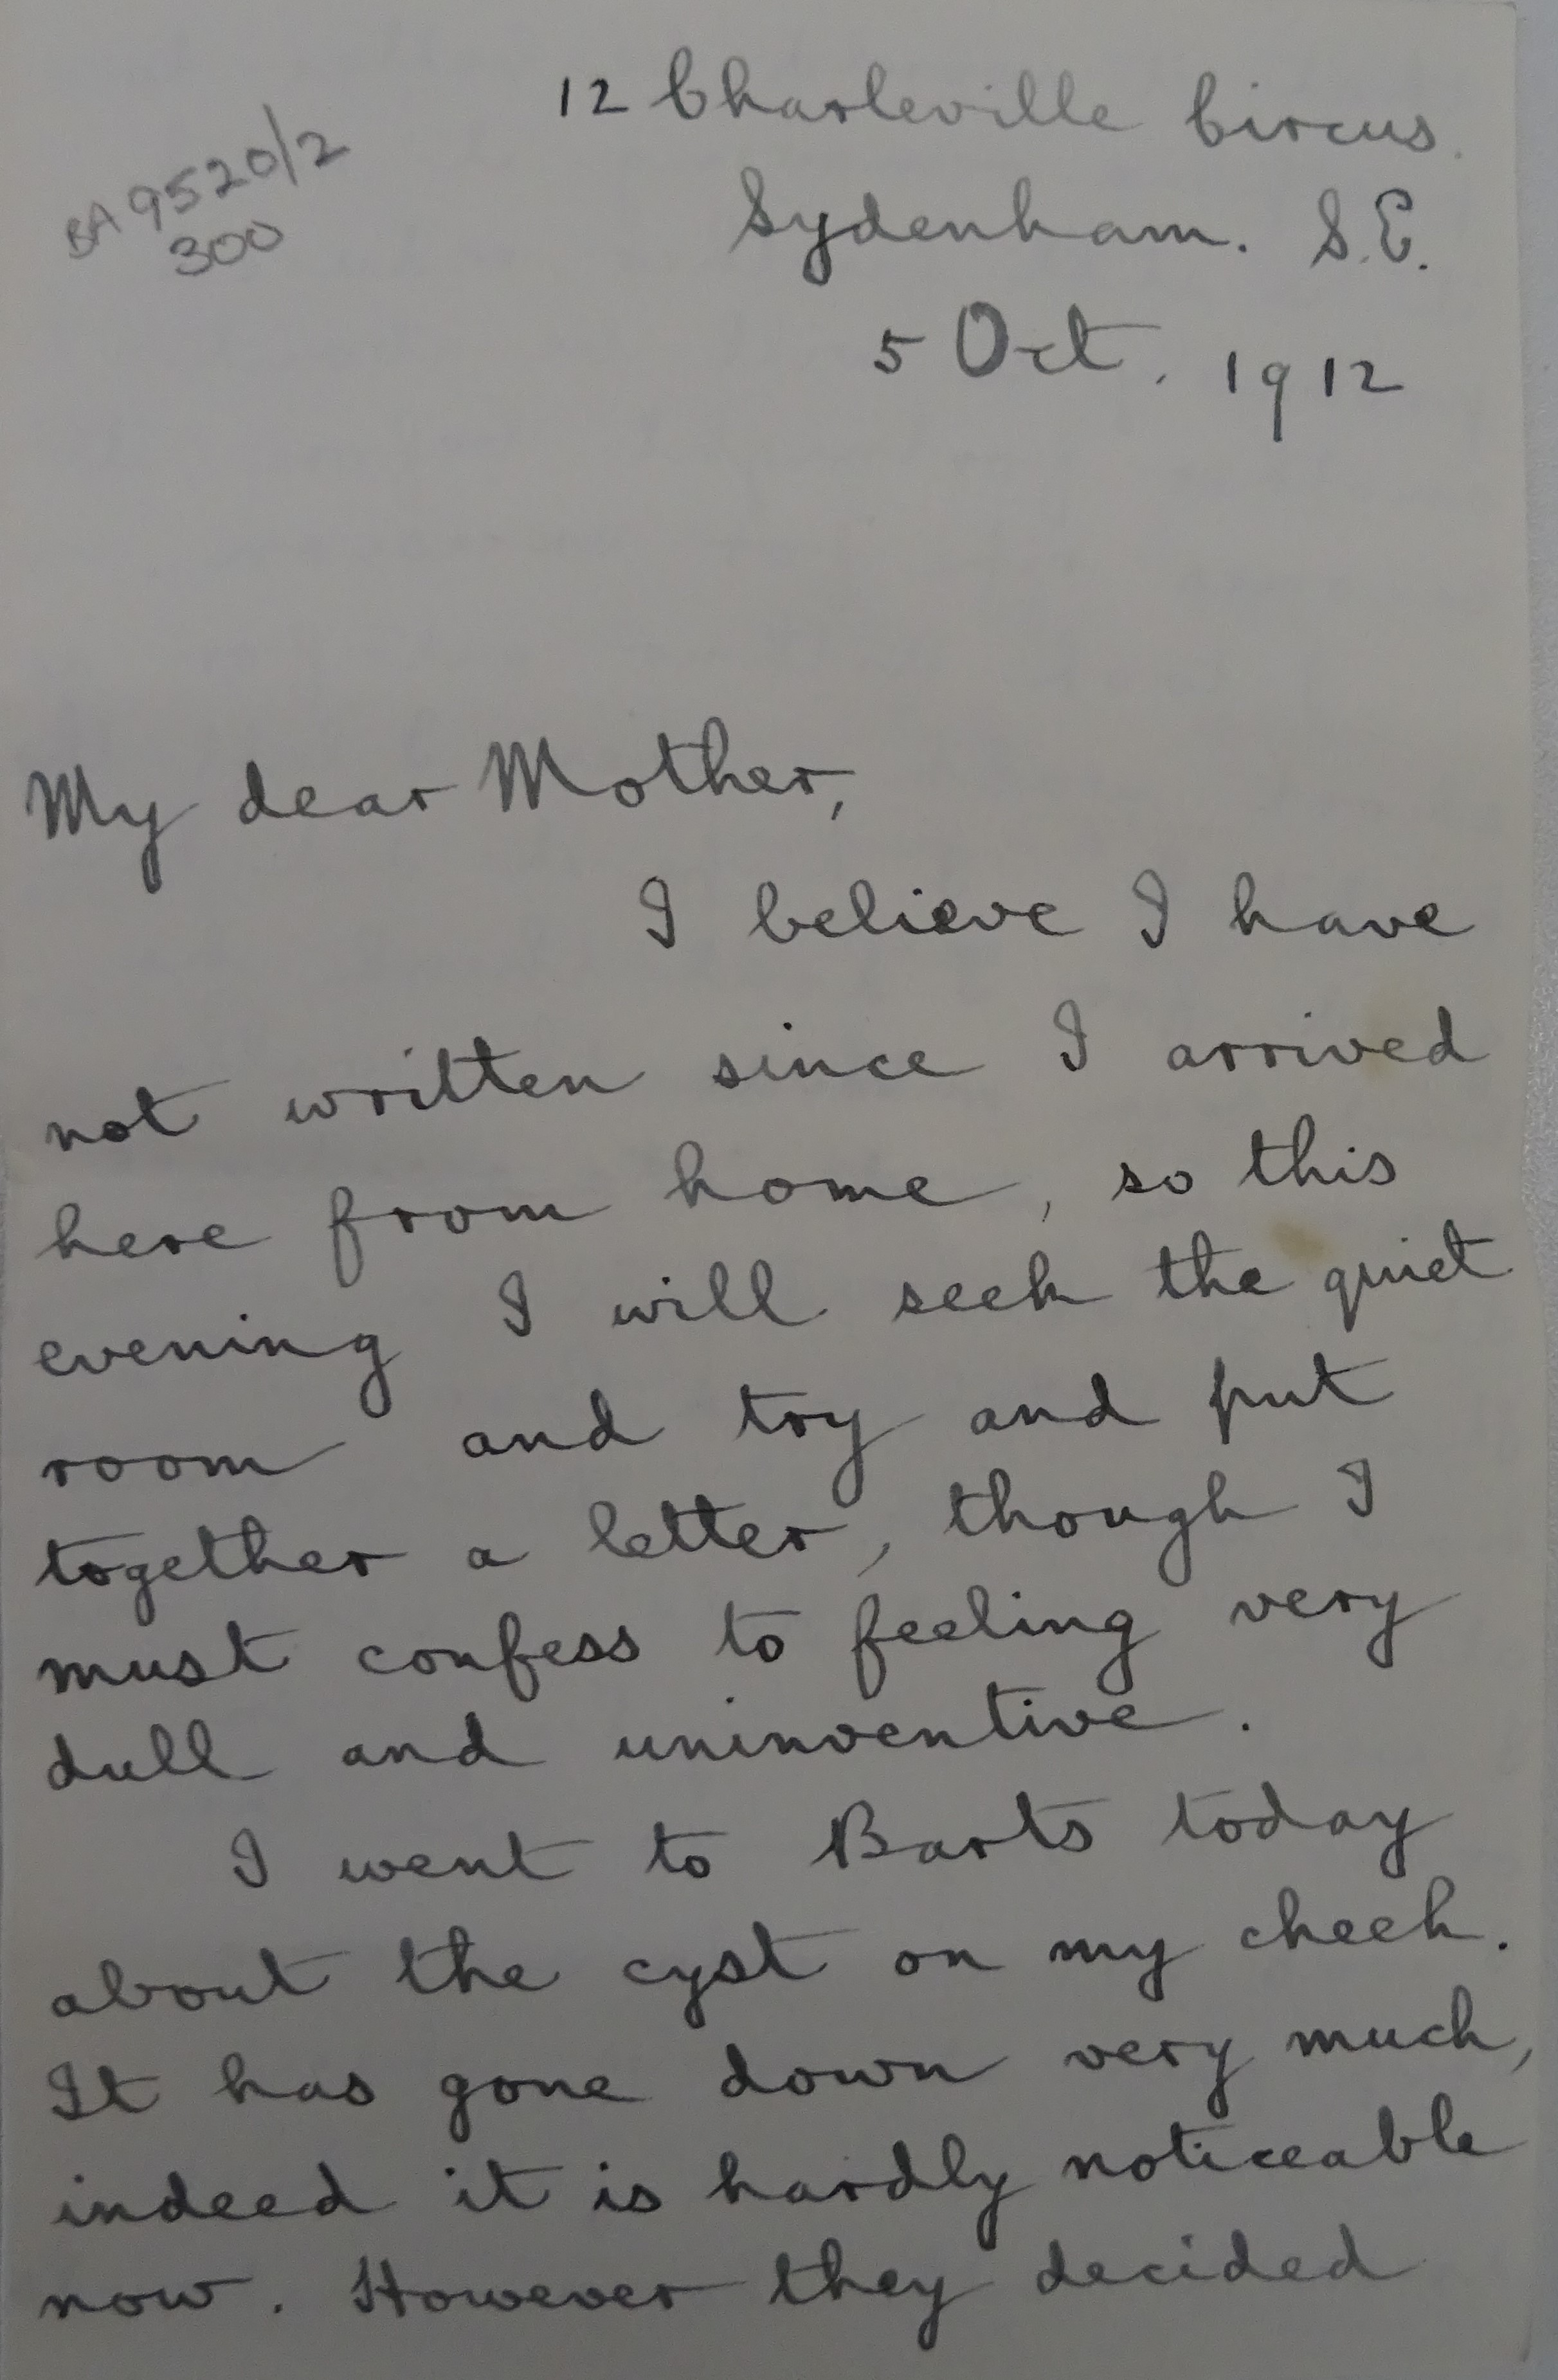 12 Charleville Circus.
BA 9520/2
300
Sydenham. S.E.
5 Oct. 1912
My dear Mother,
I believe I have
not written since I arrived
here from home, so this
evening I will seek the quiet
room and try and put
together a letter, though I
must confess to feeling very
dull and uninventive.
I went to Barts today
about the cyst on my cheek.
It has gone down very much,
indeed it is hardly noticeable
now. However they decided